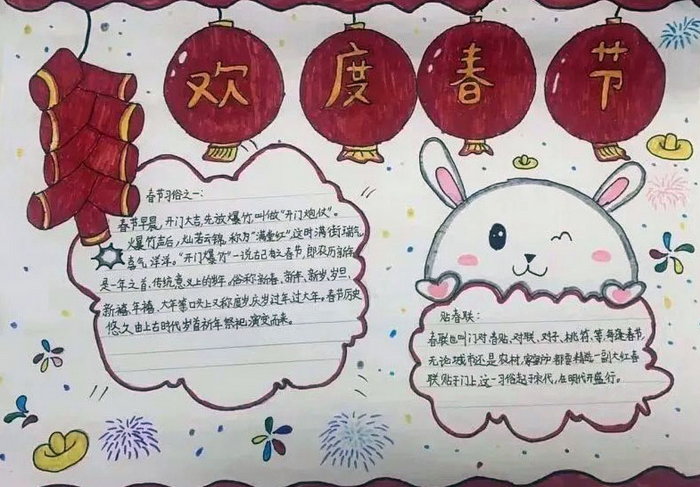 欢度春节
春节习俗之一:
春节早晨,开门大吉,先放爆竹叫做“开门炮仗”。
爆竹声后,灿若云锦,称为“满堂红”,这时满街瑞气
喜气洋洋。“开门爆竹”一说古已有之春节,即农历新年
是一年之首,传统意义上的岁年,俗称新春、新年、新岁、岁旦、
新禧、年禧、大年等口头上又称度岁、庆岁过年、过大年。春节历史
悠久,由上古时代岁首祈年祭祀演变而来。
贴春联:
春联也叫门对、春贴、对联、对子、桃符等,每逢春节
无论城市还是农村,家家户户都要精选一副大红春
联贴于门上,这一习俗起于宋代,在明代开盛行。